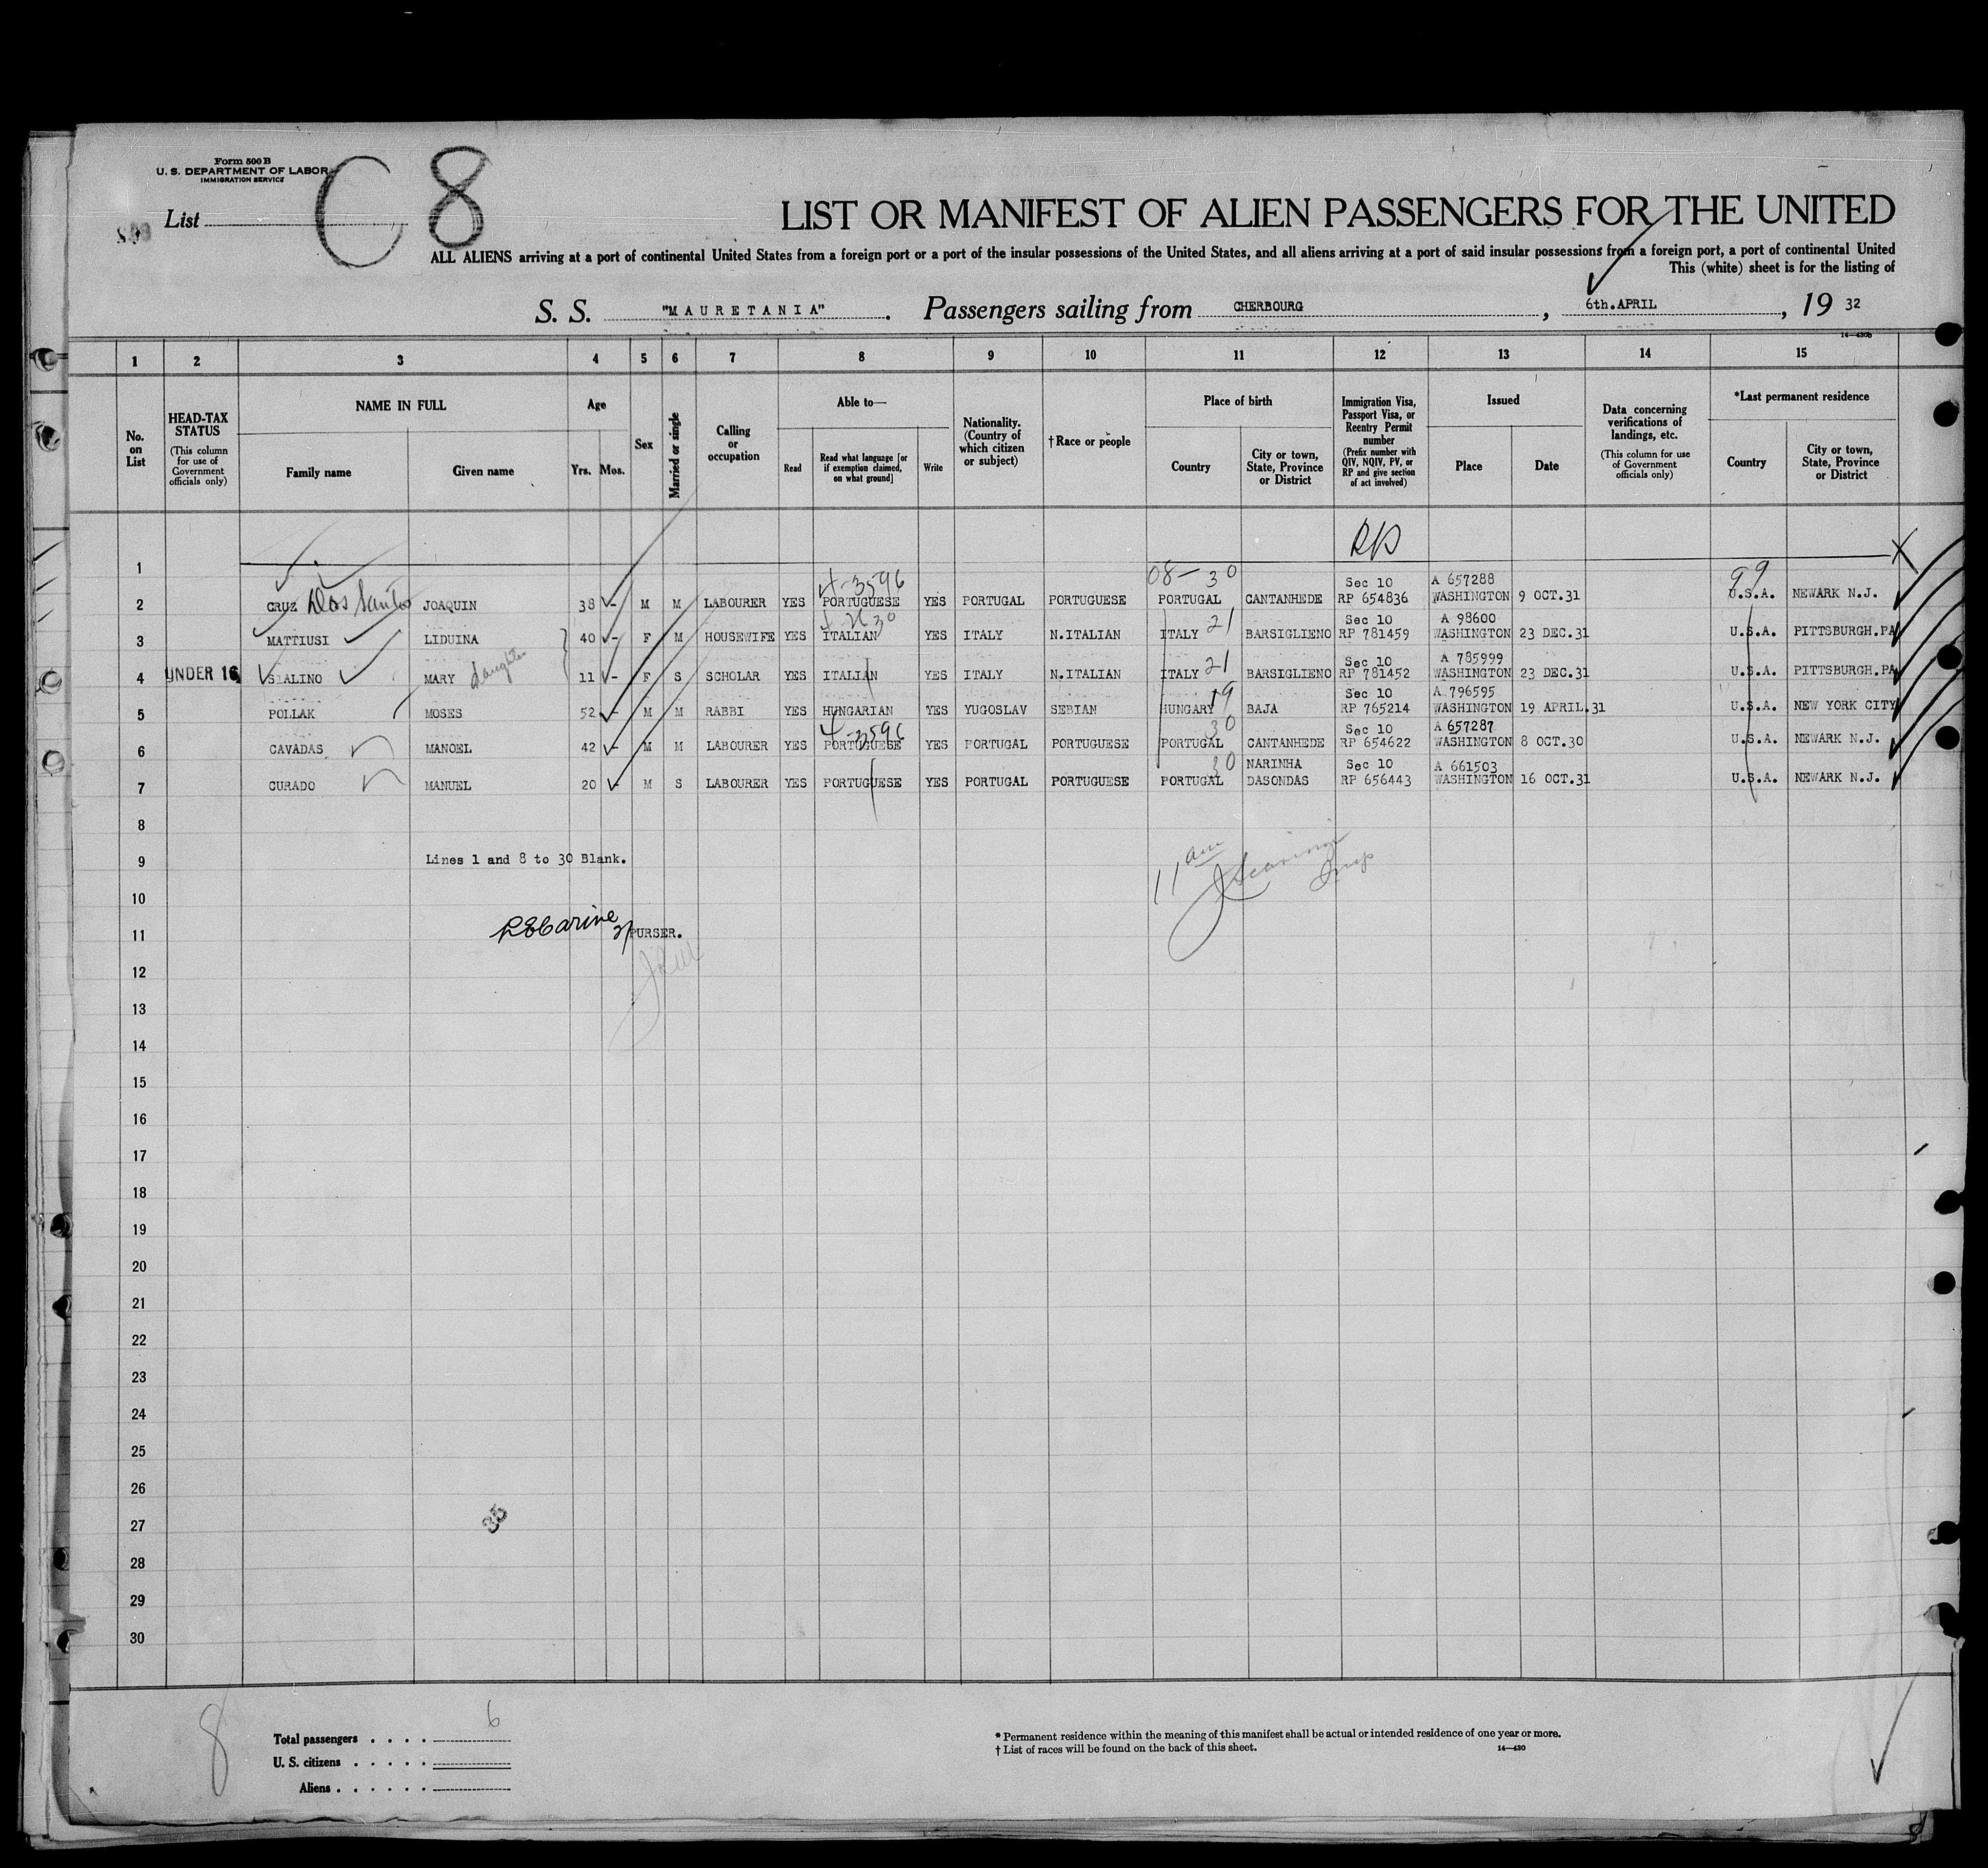 Form 500 B
U. S. DEPARTMENT OF LABOR
IMMIGRATION SERVICE
List C 8
LIST OR MANIFEST OF ALIEN PASSENGERS FOR THE UNITED
ALL ALIENS arriving at a port of continental United States from a foreign port or a port of the insular possessions of the United States, and all aliens arriving at a port of said insular possessions from a foreign port, a port of continental United
This (white) sheet is for the listing of
S. S. "MAURETANIA". Passengers sailing from CHERBOURG, 6th.APRIL, 19 32
14—430b
1 2 3 4 5 6 7 8 9 10 11 12 13 14 15
No. on List
HEAD-TAX STATUS
(This column for use of Government officials only)
NAME IN FULL
Family name
Given name
Age
Yrs. Mos.
Sex
Married or single
Calling or occupation
Able to—
Read
Read what language [or if exemption claimed, on what ground]
Write
Nationality. (Country of which citizen or subject)
†Race or people
Place of birth
Country
City or town, State, Province or District
Immigration Visa, Passport Visa, or Reentry Permit number
(Prefix number with QIV, NQIV, PV, or RP and give section of act involved)
Issued
Place
Date
Data concerning verifications of landings, etc.
(This column for use of Government officials only)
*Last permanent residence
Country
City or town, State, Province or District
RP
1
4-3596 08-30 Sec 10 A 657288 99
2 CRUZ Dos Santos JOAQUIN 38 - M M LABOURER YES PORTUGUESE YES PORTUGAL PORTUGUESE PORTUGAL CANTANHEDE RP 654836 WASHINGTON 9 OCT.31 U.S.A. NEWARK N.J.
21 Sec 10 A 98600
3 MATTIUSI LIDUINA 40 - F M HOUSEWIFE YES ITALIAN YES ITALY N.ITALIAN ITALY BARSIGLIENO RP 781459 WASHINGTON 23 DEC.31 U.S.A. PITTSBURGH.PA
21 Sec 10 A 785999
4 UNDER 16 SIALINO MARY daughter 11 - F S SCHOLAR YES ITALIAN YES ITALY N.ITALIAN ITALY BARSIGLIENO RP 781452 WASHINGTON 23 DEC.31 U.S.A. PITTSBURGH.PA
19 Sec 10 A 796595
5 POLLAK MOSES 52 - M M RABBI YES HUNGARIAN YES YUGOSLAV SEBIAN HUNGARY BAJA RP 765214 WASHINGTON 19 APRIL.31 U.S.A. NEW YORK CITY
4-3596 30 Sec 10 A 657287
6 CAVADAS MANOEL 42 - M M LABOURER YES PORTUGUESE YES PORTUGAL PORTUGUESE PORTUGAL CANTANHEDE RP 654622 WASHINGTON 8 OCT.30 U.S.A. NEWARK N.J.
30 NARINHA Sec 10 A 661503
7 CURADO MANUEL 20 - M S LABOURER YES PORTUGUESE YES PORTUGAL PORTUGUESE PORTUGAL DASONDAS RP 656443 WASHINGTON 16 OCT.31 U.S.A. NEWARK N.J.
8
9 Lines 1 and 8 to 30 Blank.
11 am
10
11 PURSER.
12
13
14
15
16
17
18
19
20
21
22
23
24
25
26
27
35
28
29
30
8
Total passengers . . . . 6
U. S. citizens . . . . .
Aliens . . . . . .
* Permanent residence within the meaning of this manifest shall be actual or intended residence of one year or more.
† List of races will be found on the back of this sheet.
14—430